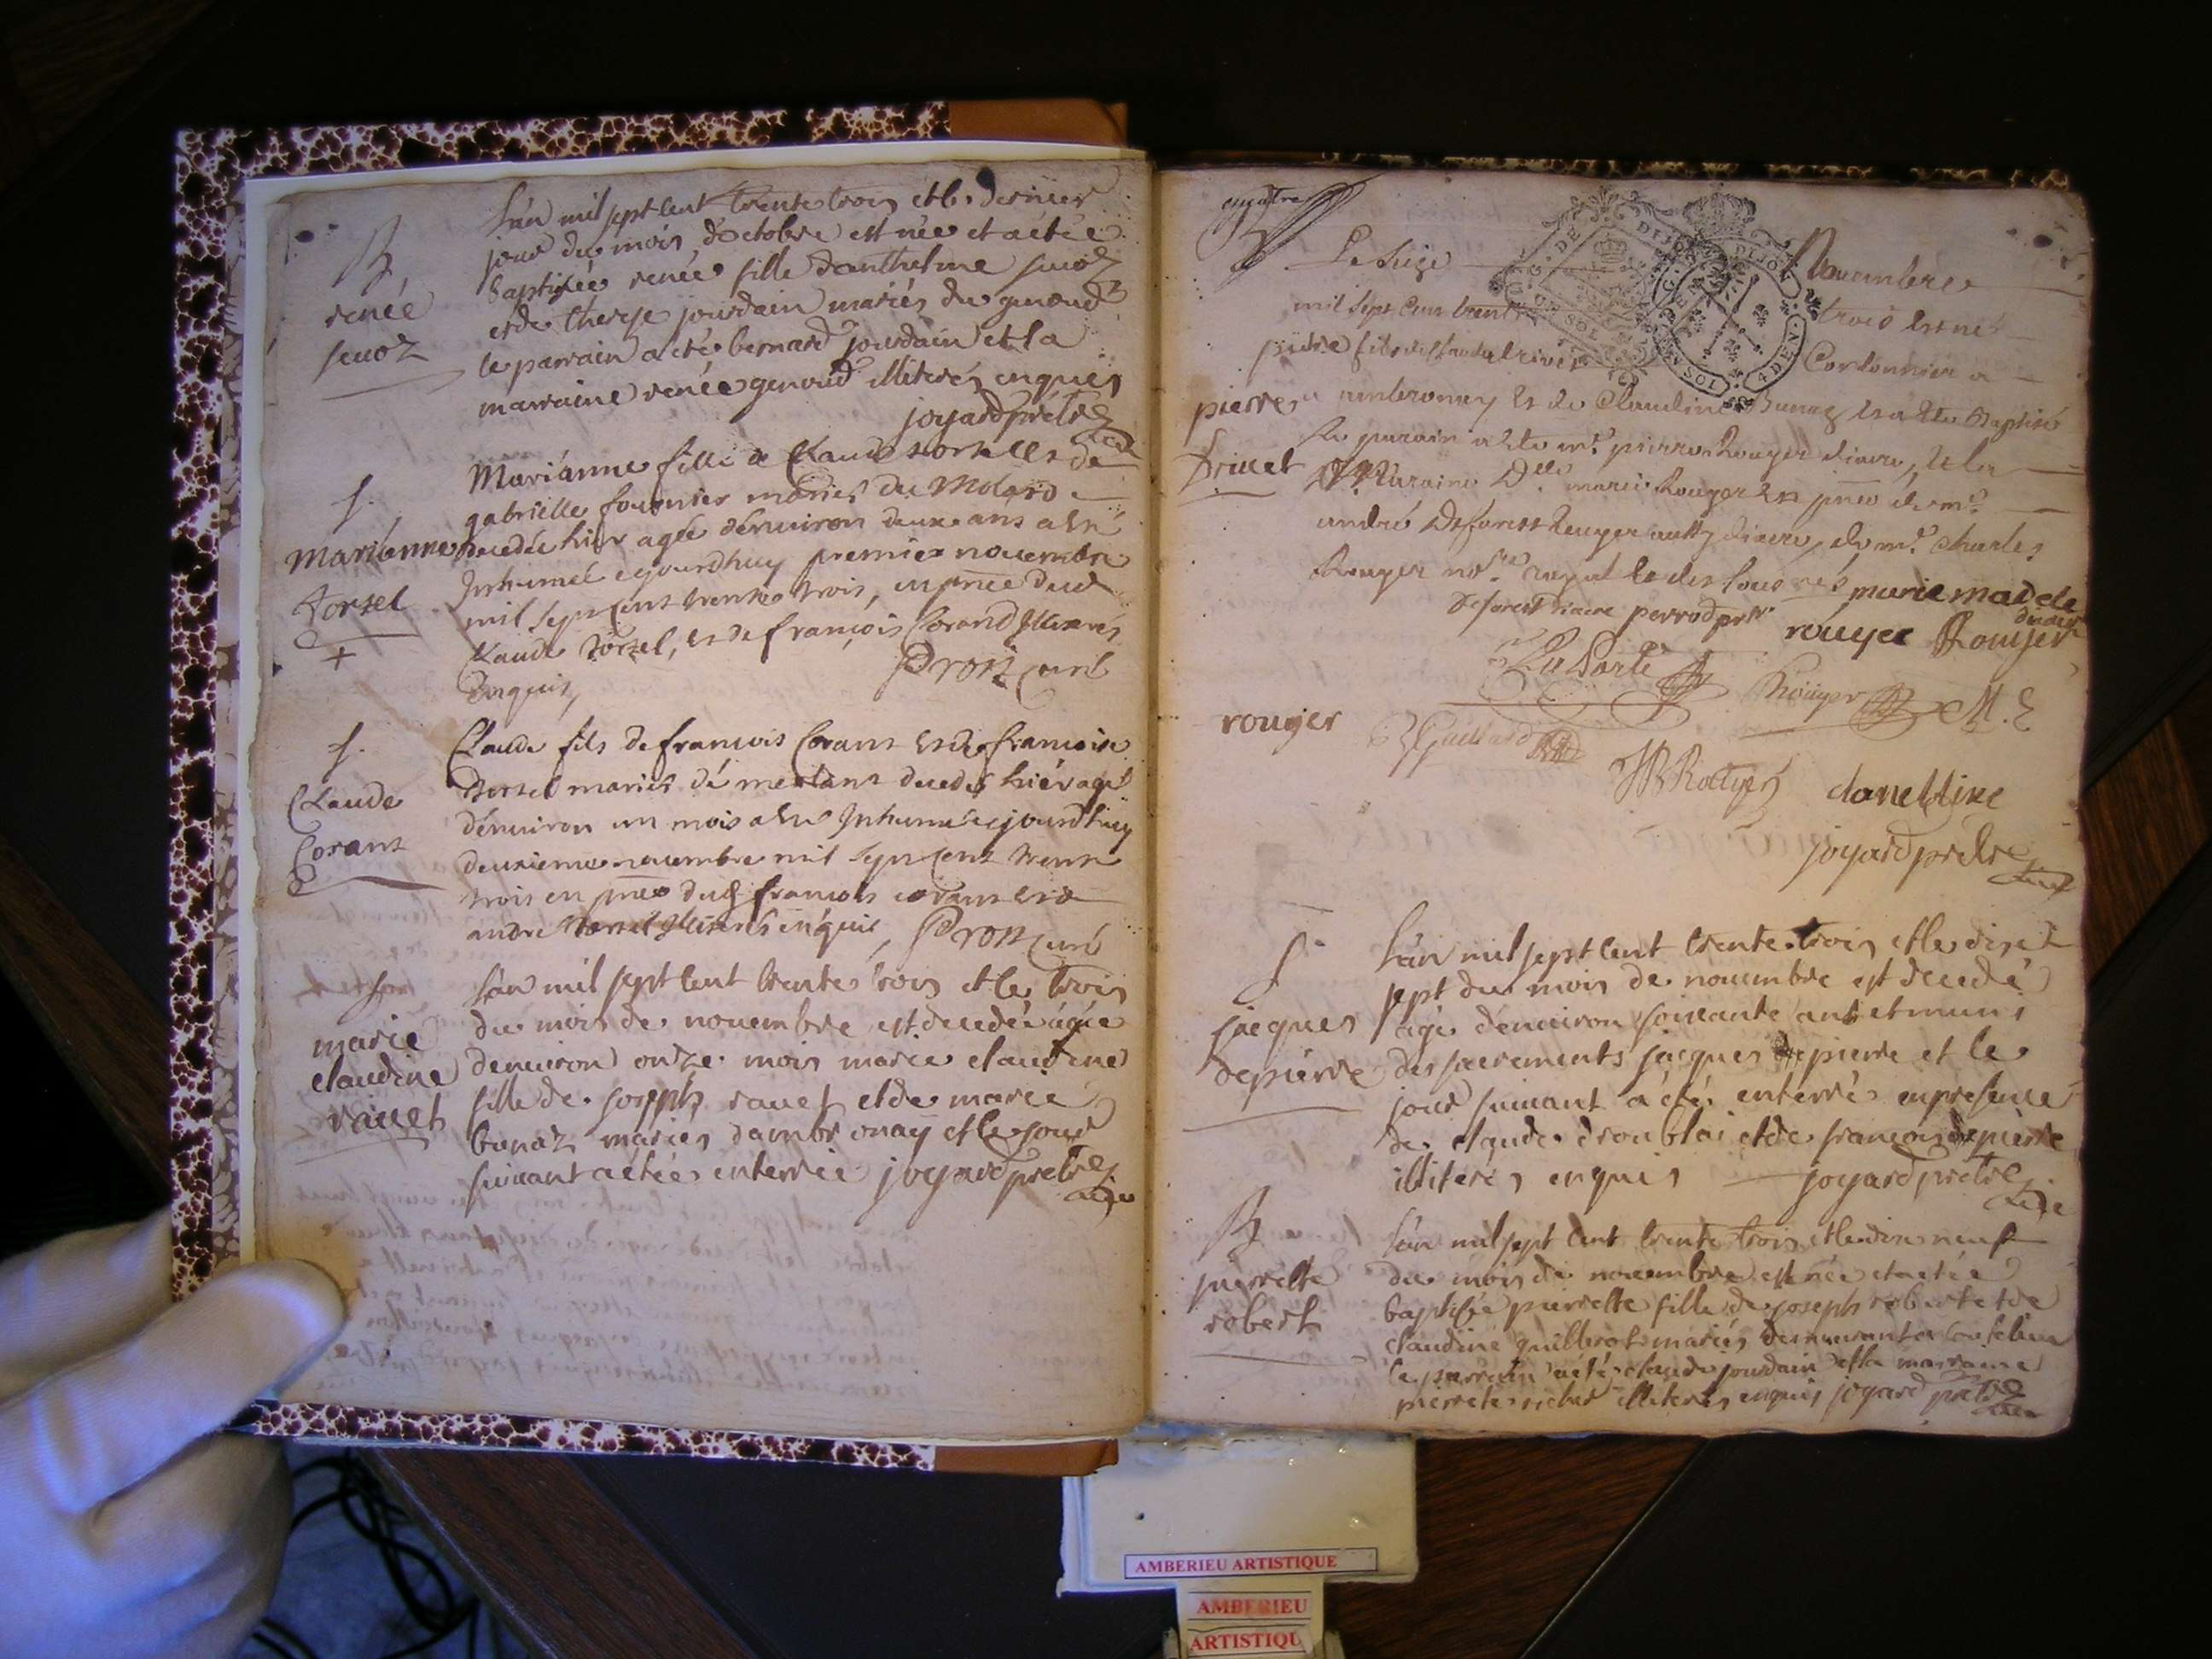 B
renée
senoz
L'an mil sept cent trente trois et le dernier
jour du mois d'octobre est née et a étée
baptisée renée fille d'anthelme senoz
et de therese jourdain mariés du genoud
le parrain a été bernard jourdain et la
marraine renée genoud illiterés enquis
joyard prêtre
f.
Marianne
Torsel
+
Marianne fille de Claude torsel et de
gabrielle fournier mariés du Molard
decedée hier agée dénuiron deux ans a été
Inhumée ejourdhuy premier nouembre
mil sept cens trente trois, en pnce dud
Claude Torsel, et de françois Corand Illiterés
Enquis,
Prost curé
f.
Claude
Corant
Claude fils de francois Corant et de francoise
Torsel mariés dé merlant decedés hiér agé
dénuiron un mois a été Inhumé ejourdhuy
deuxieme nouembre mil sept cent trente
trois en pnce dud francois corant et de
andre torsel Illiterés enquis, Prost curé
f
marie
claudine
rauet
L'an mil sept cent trente trois et le trois
du mois de nouembre est decedée agée
denuiron onze mois marie claudine
fille de joseph rauet et de marie
bunaz mariés d'ambronay et le jour
suiuant a étée enterrée joyard prêtre
B
pierre
Le Seize Nouembre
mil Sept Cens trente trois est né
pierre fils de Cordonnier a
ambronay et de Claudine Bunaz et a été Baptisé
Le parain a été mr. pierre Rouyer diacre, et la
Maraine Delle. marie Rouyer en pnce de mr.
andré Deforest Rouyer aussy diacre, de mr. Charles
Rouyer nore. royal et des Sous nés marie madele
Deforest diacre perrod ptr rouyer Rouyer
diacre
LaPorte Roüyer M. E
rouyer Guillard
JB Rouyer
joyard prêtre
f.
jacques
depierre
L'an mil sept cent trente trois et le dix et
sept du mois de nouembre est decedé
agé dénuiron soixante ans et muni
des sacrements jacques depierre et le
jour suiuant a été enterré en presence
de claude droublai et de françois depierre
illiterés enquis joyard prêtre
B
pierrette
robert
L'an mil sept cent trente trois et le dix neuf
du mois de nouembre est née et a étée
baptisée pierrette fille de joseph robert et de
claudine guillerot mariés demeurant a
le parrain a été claude jourdain et la marraine
pierrete illiterés enquis joyard prêtre
G. DE DIJON
UN SOL
G. DE DIJON
UN SOL 4 DEN.
AMBERIEU ARTISTIQUE
AMBERIEU
ARTISTIQU